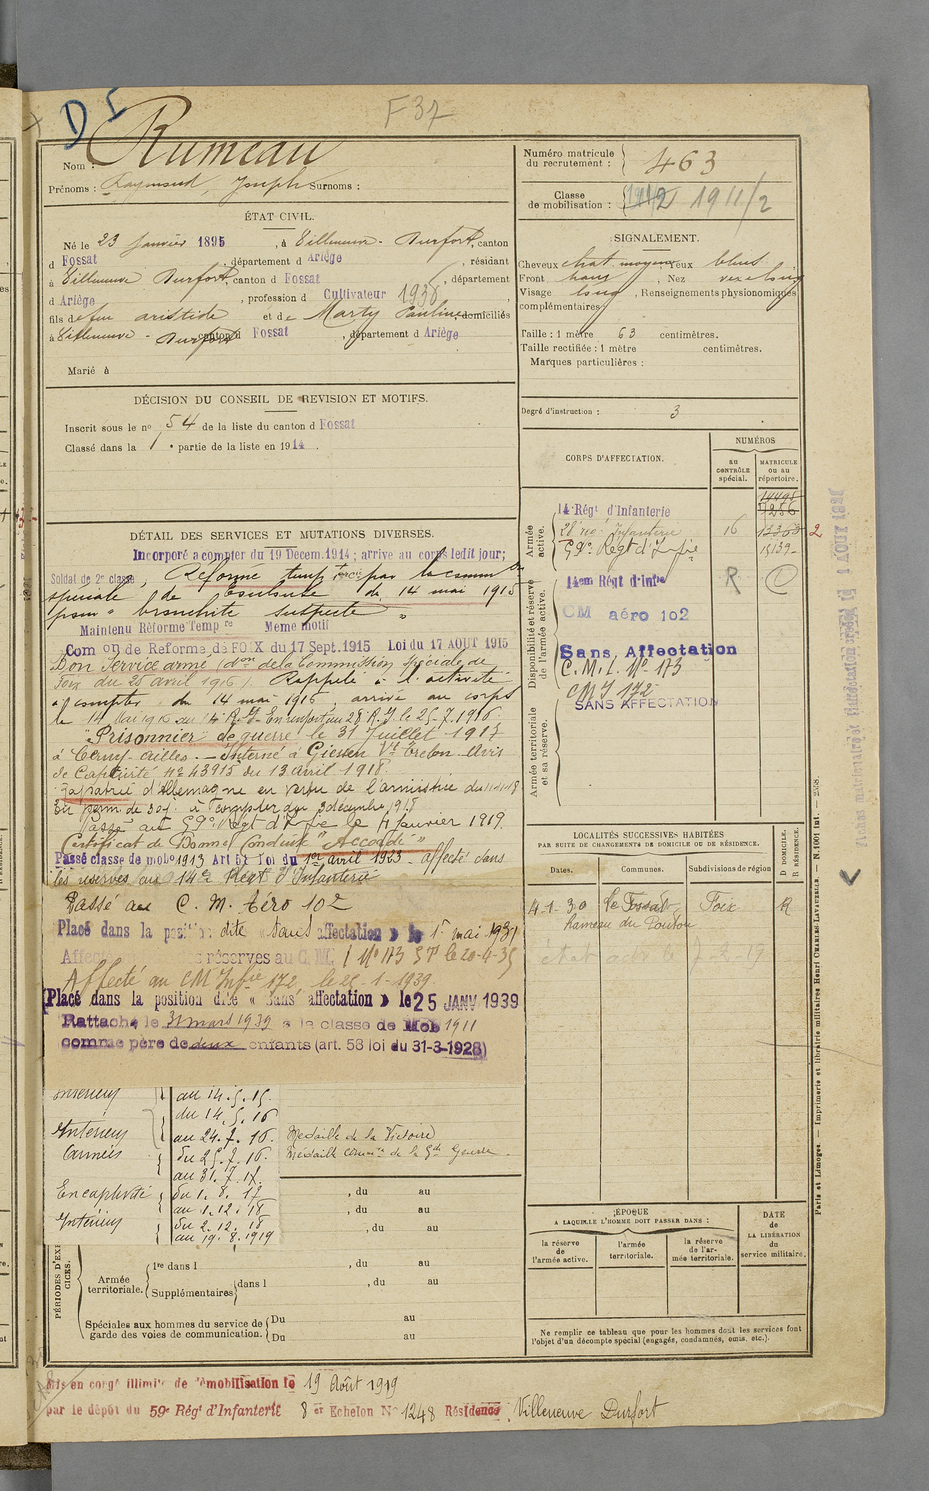 D I
F 37
Nom : Rumeau
Prénoms : Raymond, Joseph Surnoms :
ÉTAT CIVIL.
Né le 23 Janvier 1895, à Villeneuve-Durfort, canton
d Fossat, département d Ariège, résidant
à Villeneuve Durfort, canton d Fossat, département
d Ariège, profession d Cultivateur 1936,
fils de feu aristide et de Marty Pauline domiciliés
à Villeneuve-Durfort canton d Fossat, département d Ariège
Marié à
DÉCISION DU CONSEIL DE REVISION ET MOTIFS.
Inscrit sous le n° 54 de la liste du canton d Fossat
Classé dans la 1° partie de la liste en 1914.
DÉTAIL DES SERVICES ET MUTATIONS DIVERSES.
Incorporé a compter du 19 Décem. 1914; arrive au corps ledit jour;
Soldat de 2e classe, Réformé temp re par la comm on
spéciale de Toulouse du 14 mai 1915
pour " bronchite suspecte "
Maintenu Réforme Temp re Meme motif
Com on de Reforme de FOIX du 17 Sept. 1915 Loi du 17 AOUT 1915
Bon Service armé (don de la Commission Spéciale de
Foix du 25 avril 1916). Rappelé à l'activité
à compter du 14 mai 1916, arrivé au corps
le 14 Mai 1916 au 14e R.I. En renfort au 28 R.I. le 25.7.1916.
"Prisonnier de guerre le 31 Juillet 1917
à Cerny-Ailles. - Interné à Giessen Vt Trelon. Avis
de Captivité N° 43915 du 13 avril 1918
Rapatrié d'Allemagne en vertu de l'armistice du 11.11.18
En perm. de 30 j. à compter du 3 décembre 1918
Passé au 59e Régt d'Infie le 4 Janvier 1919.
Certificat de Bonne Conduite "Accordé"
Passé classe de mobon 1913 Art 51 Loi du 1er avril 1923 - affecté dans
les réserves au 14e Régt d'Infanterie
Passé au C. M. Aéro 102
Placé dans la position dite « sans affectation » le 1er mai 1931
Affecté réserves au C. M. I N° 173 le 20-4-35
Affecté au CM Infie 172, le 25-1-1939
Placé dans la position dite « sans affectation » le 25 JANV 1939
Rattaché le 31 mars 1939 à la classe de Mob 1911
comme père de deux enfants (art. 58 loi du 31-3-1928)
Intérieur au 14.5.15.
Intérieur du 14.5.16 au 24.7.16.
Médaille de la Victoire
Armées du 25.7.16. au 31.7.17.
Médaille comm ve de la Gde Guerre
En captivité du 1.8.17 au 1.12.18
, du au
Intérieur du 2.12.18 au 19.8.1919
, du au
, du au
PÉRIODES D'EXERCICES.
Armée territoriale.
1re dans l , du au
Supplémentaires dans l , du au
Spéciales aux hommes du service de garde des voies de communication.
Du au
Du au
Mis en congé illimité de démobilisation le 19 Août 1919
par le dépôt du 59e Régt d'Infanterie 8 er Echelon N° 1248 Résidence Villeneuve Durfort
Numéro matricule du recrutement : 463
Classe de mobilisation : 1912 1911/2
SIGNALEMENT.
Cheveux chat. moyens, Yeux bleus
Front haut, Nez vex. long
Visage long, Renseignements physionomiques
complémentaires :
Taille : 1 mètre 63 centimètres.
Taille rectifiée : 1 mètre centimètres.
Marques particulières :
Degré d'instruction : 3
CORPS D'AFFECTATION.
NUMÉROS
AU CONTRÔLE spécial.
MATRICULE OU AU répertoire.
Armée active.
14 Régt d'Infanterie
28e rég. Infanterie 16
59e Régt d'Infie
14498
7286
13303 2
15139
Disponibilité et réserve de l'armée active.
14em Régt d'Infie R
CM aéro 102
Sans Affectation
C. M. I. N° 173
CMI 172
SANS AFFECTATION
Armée territoriale et sa réserve.
LOCALITÉS SUCCESSIVES HABITÉES
PAR SUITE DE CHANGEMENTS DE DOMICILE OU DE RÉSIDENCE.
D DOMICILE. R RÉSIDENCE.
Dates. Communes. Subdivisions de région
4-1-30 Le Fossat Foix R
hameau du Pouton
ÉPOQUE
A LAQUELLE L'HOMME DOIT PASSER DANS :
DATE DE LA LIBÉRATION du service militaire.
la réserve de l'armée active.
l'armée territoriale.
la réserve de l'armée territoriale.
Ne remplir ce tableau que pour les hommes dont les services font
l'objet d'un décompte spécial (engagés, condamnés, omis, etc.).
Paris et Limoges. — Imprimerie et librairie militaires Henri CHARLES-LAVAUZELLE. — N. 1001 int. — 2538.